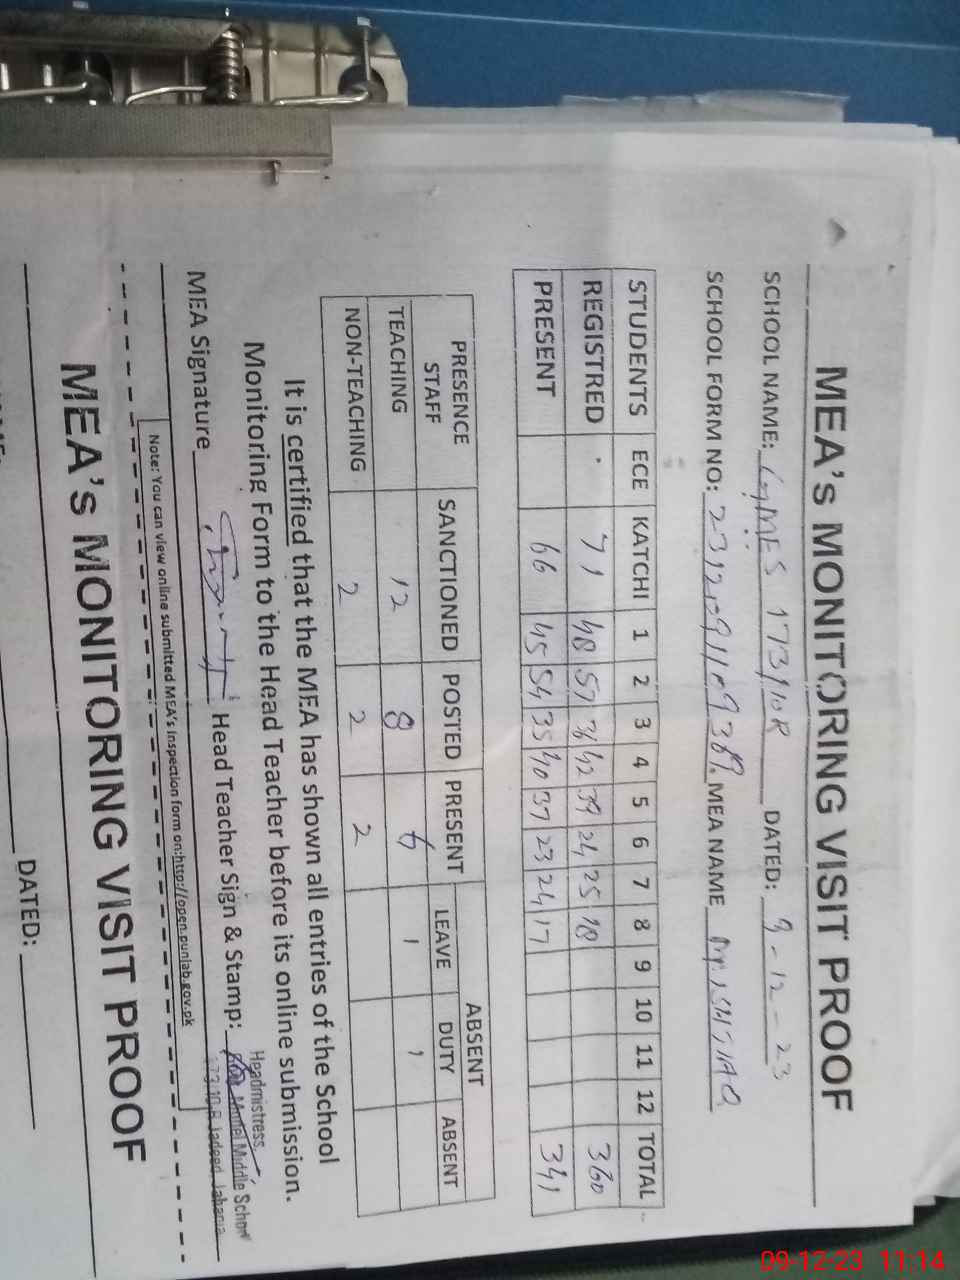 MEA's MONITORING VISIT PROOF
SCHOOL NAME: GGMES 173/10R DATED: 9-12-23
SCHOOL FORM NO: MEA NAME
STUDENTS ECE KATCHI 1 2 3 4 5 6 7 8 9 10 11 12 TOTAL
REGISTRED 71 48 57 36 42 39 24 25 18 360
PRESENT 66 45 54 35 40 37 23 24 17 341
PRESENCE STAFF SANCTIONED POSTED PRESENT ABSENT
LEAVE DUTY ABSENT
TEACHING 12 8 6 1 1
NON-TEACHING 2 2 2
It is certified that the MEA has shown all entries of the School
Monitoring Form to the Head Teacher before its online submission.
MEA Signature Head Teacher Sign & Stamp:
Headmistress,
Model Middle School
173/10.R Jadeed, Jahania
Note: You can view online submitted MEA's inspection form on:http://open.punjab.gov.pk
MEA's MONITORING VISIT PROOF
DATED:
09-12-23 11:14